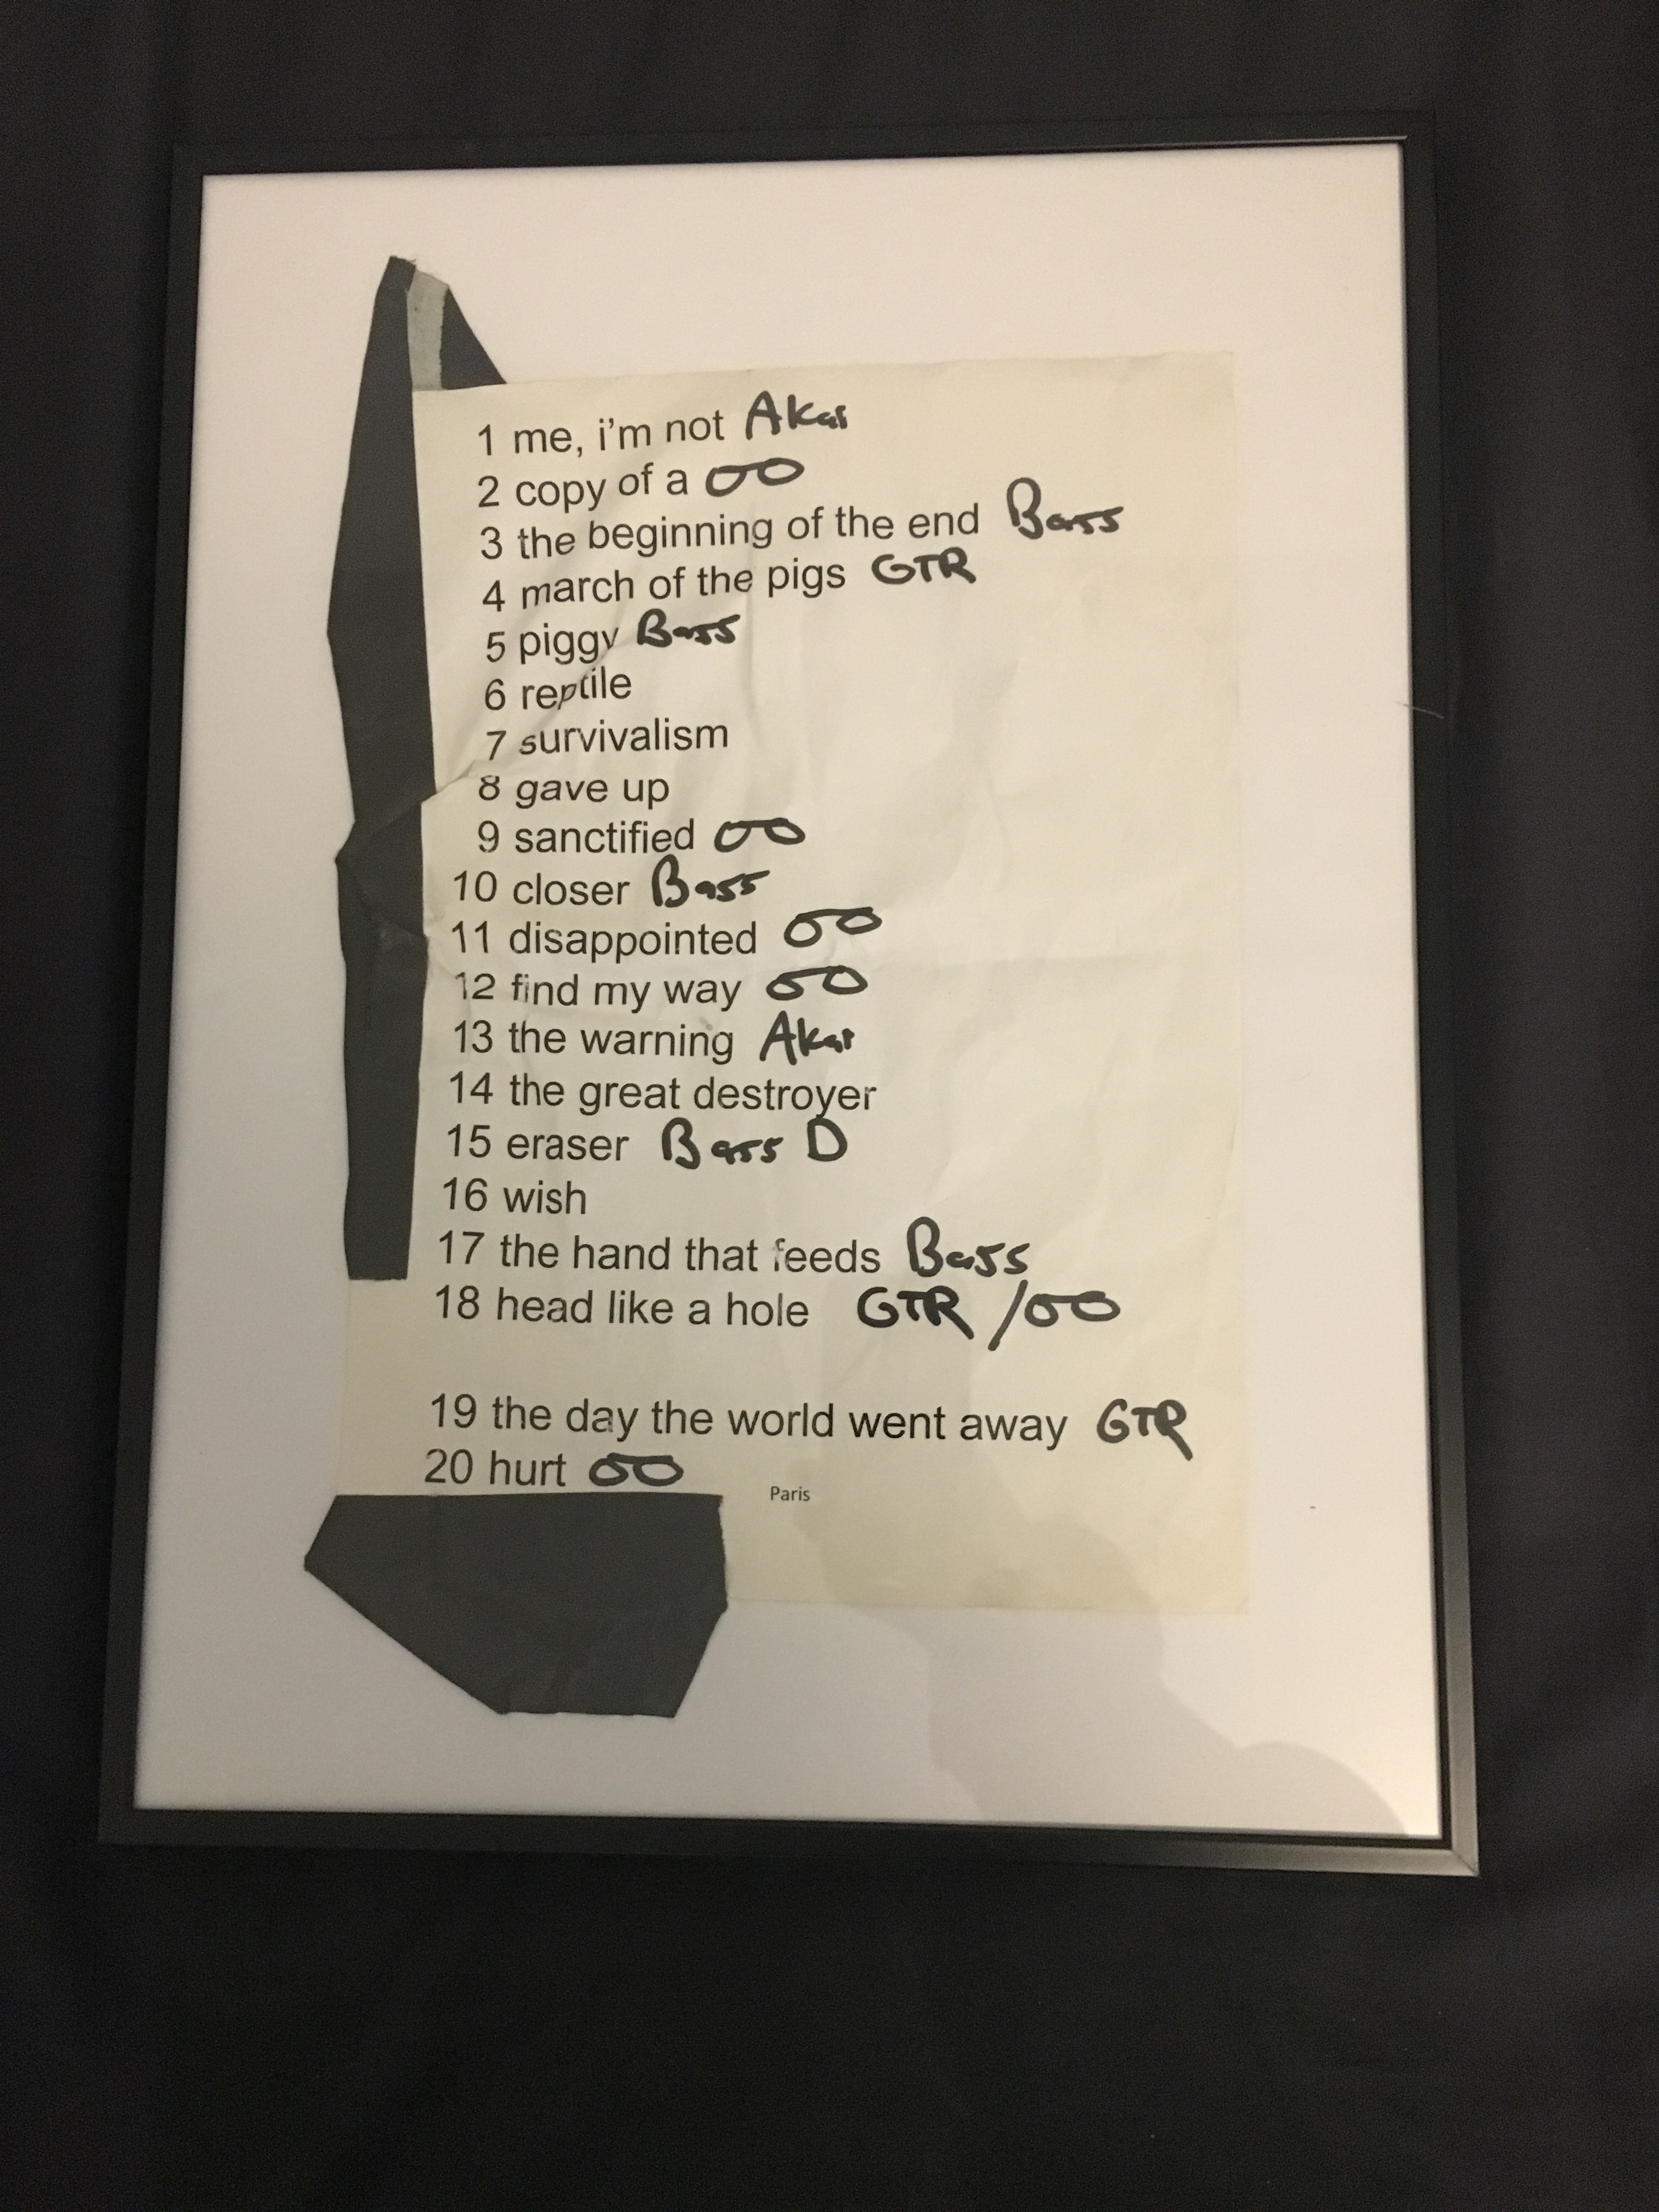 1 me, i'm not Akai
2 copy of a OO
3 the beginning of the end Bass
4 march of the pigs GTR
5 piggy Bass
6 reptile
7 survivalism
8 gave up
9 sanctified OO
10 closer Bass
11 disappointed OO
12 find my way OO
13 the warning Akai
14 the great destroyer
15 eraser Bass D
16 wish
17 the hand that feeds Bass
18 head like a hole GTR /OO
19 the day the world went away GTR
20 hurt OO
Paris